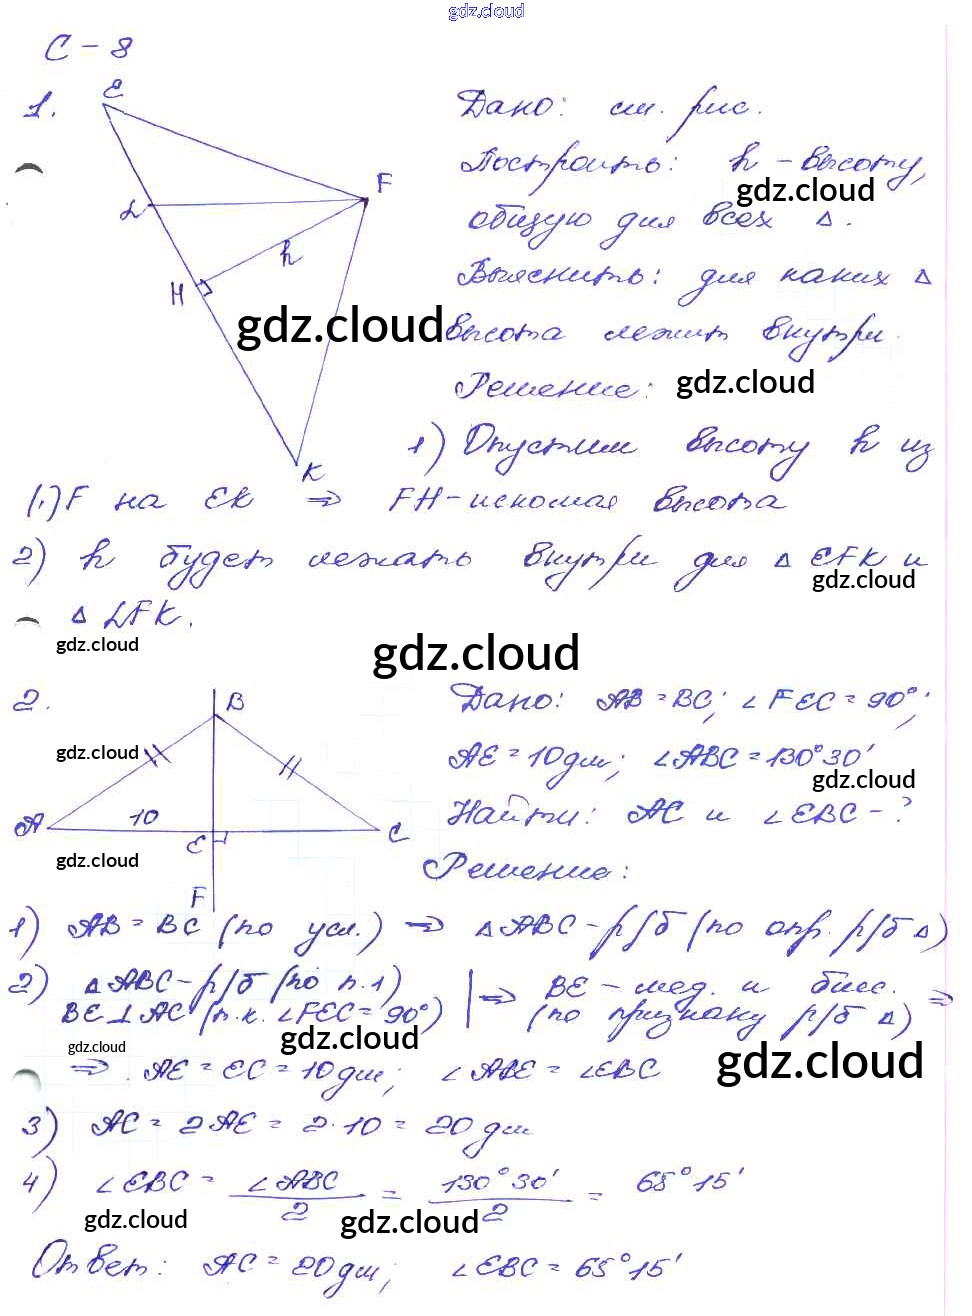 gdz.cloud
С - 8
1.
E
F
L
H
h
K
Дано: см. рис.
Построить: h - высоту,
gdz.cloud
общую для всех Δ.
Выяснить: для каких Δ
gdz.cloud
высота лежит внутри.
Решение: gdz.cloud
1) Опустим высоту h из
(·) F на EK ⇒ FH - искомая высота
2) h будет лежать внутри для Δ EFK и
gdz.cloud
Δ LFK.
gdz.cloud
gdz.cloud
2.
B
A
10
E
C
F
gdz.cloud
gdz.cloud
Дано: AB = BC; ∠FEC = 90°;
AE = 10 дм; ∠ABC = 130°30'
gdz.cloud
Найти: AC и ∠EBC - ?
Решение:
1) AB = BC (по усл.) ⇒ Δ ABC - р/б (по опр. р/б Δ)
2) Δ ABC - р/б (по п. 1) | ⇒ BE - мед. и бисс. ⇒
BE ⊥ AC (т.к. ∠FEC = 90°) (по признаку р/б Δ)
gdz.cloud
gdz.cloud
gdz.cloud
⇒ AE = EC = 10 дм; ∠ABE = ∠EBC
3) AC = 2AE = 2·10 = 20 дм
4) ∠EBC = ∠ABC / 2 = 130°30' / 2 = 65°15'
gdz.cloud
gdz.cloud
Ответ: AC = 20 дм; ∠EBC = 65°15'